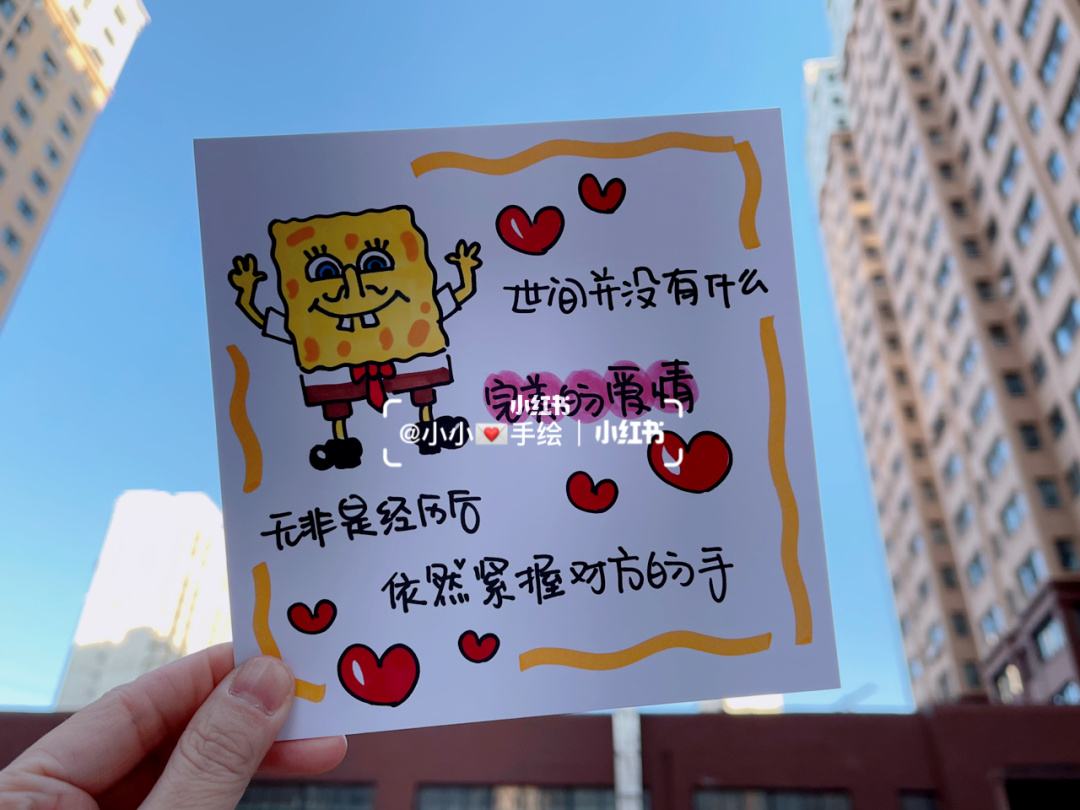 世间并没有什么
完美的爱情
小红书
@小小💌手绘 | 小红书
无非是经历后
依然紧握对方的手